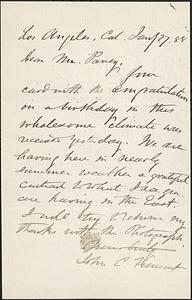 Los Angeles, Cal Jany 27, 88
Dear Mr.
Your
card with the congratulation
on a birthday in this
wholesome climate was
received yesterday. We are
having here in nearly
summer weather a grateful
contrast to what I see you
are having in the East.
I will try to return my
thanks with the Photograph.
Yours truly
John C. Fremont